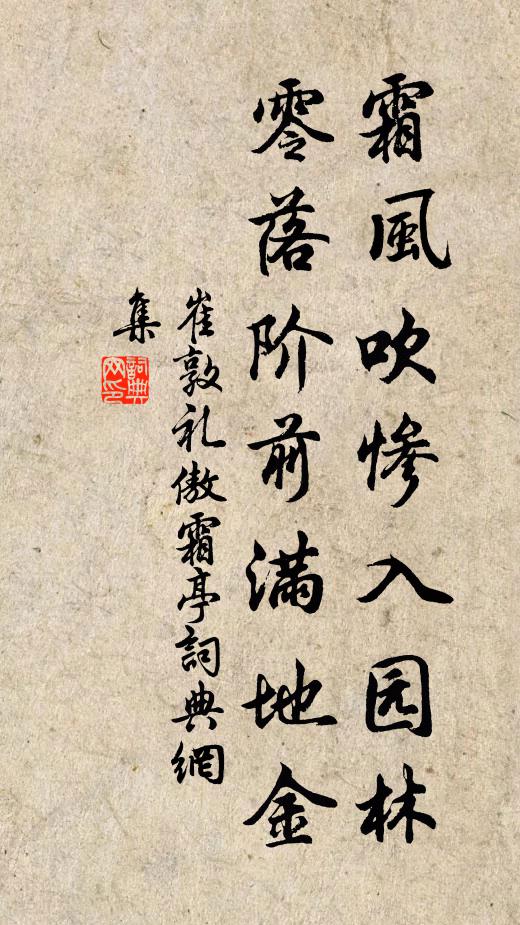 霜風吹慘入园林
零落阶前满地金
崔敦礼傲霜亭詞典網
集
詞典
网印